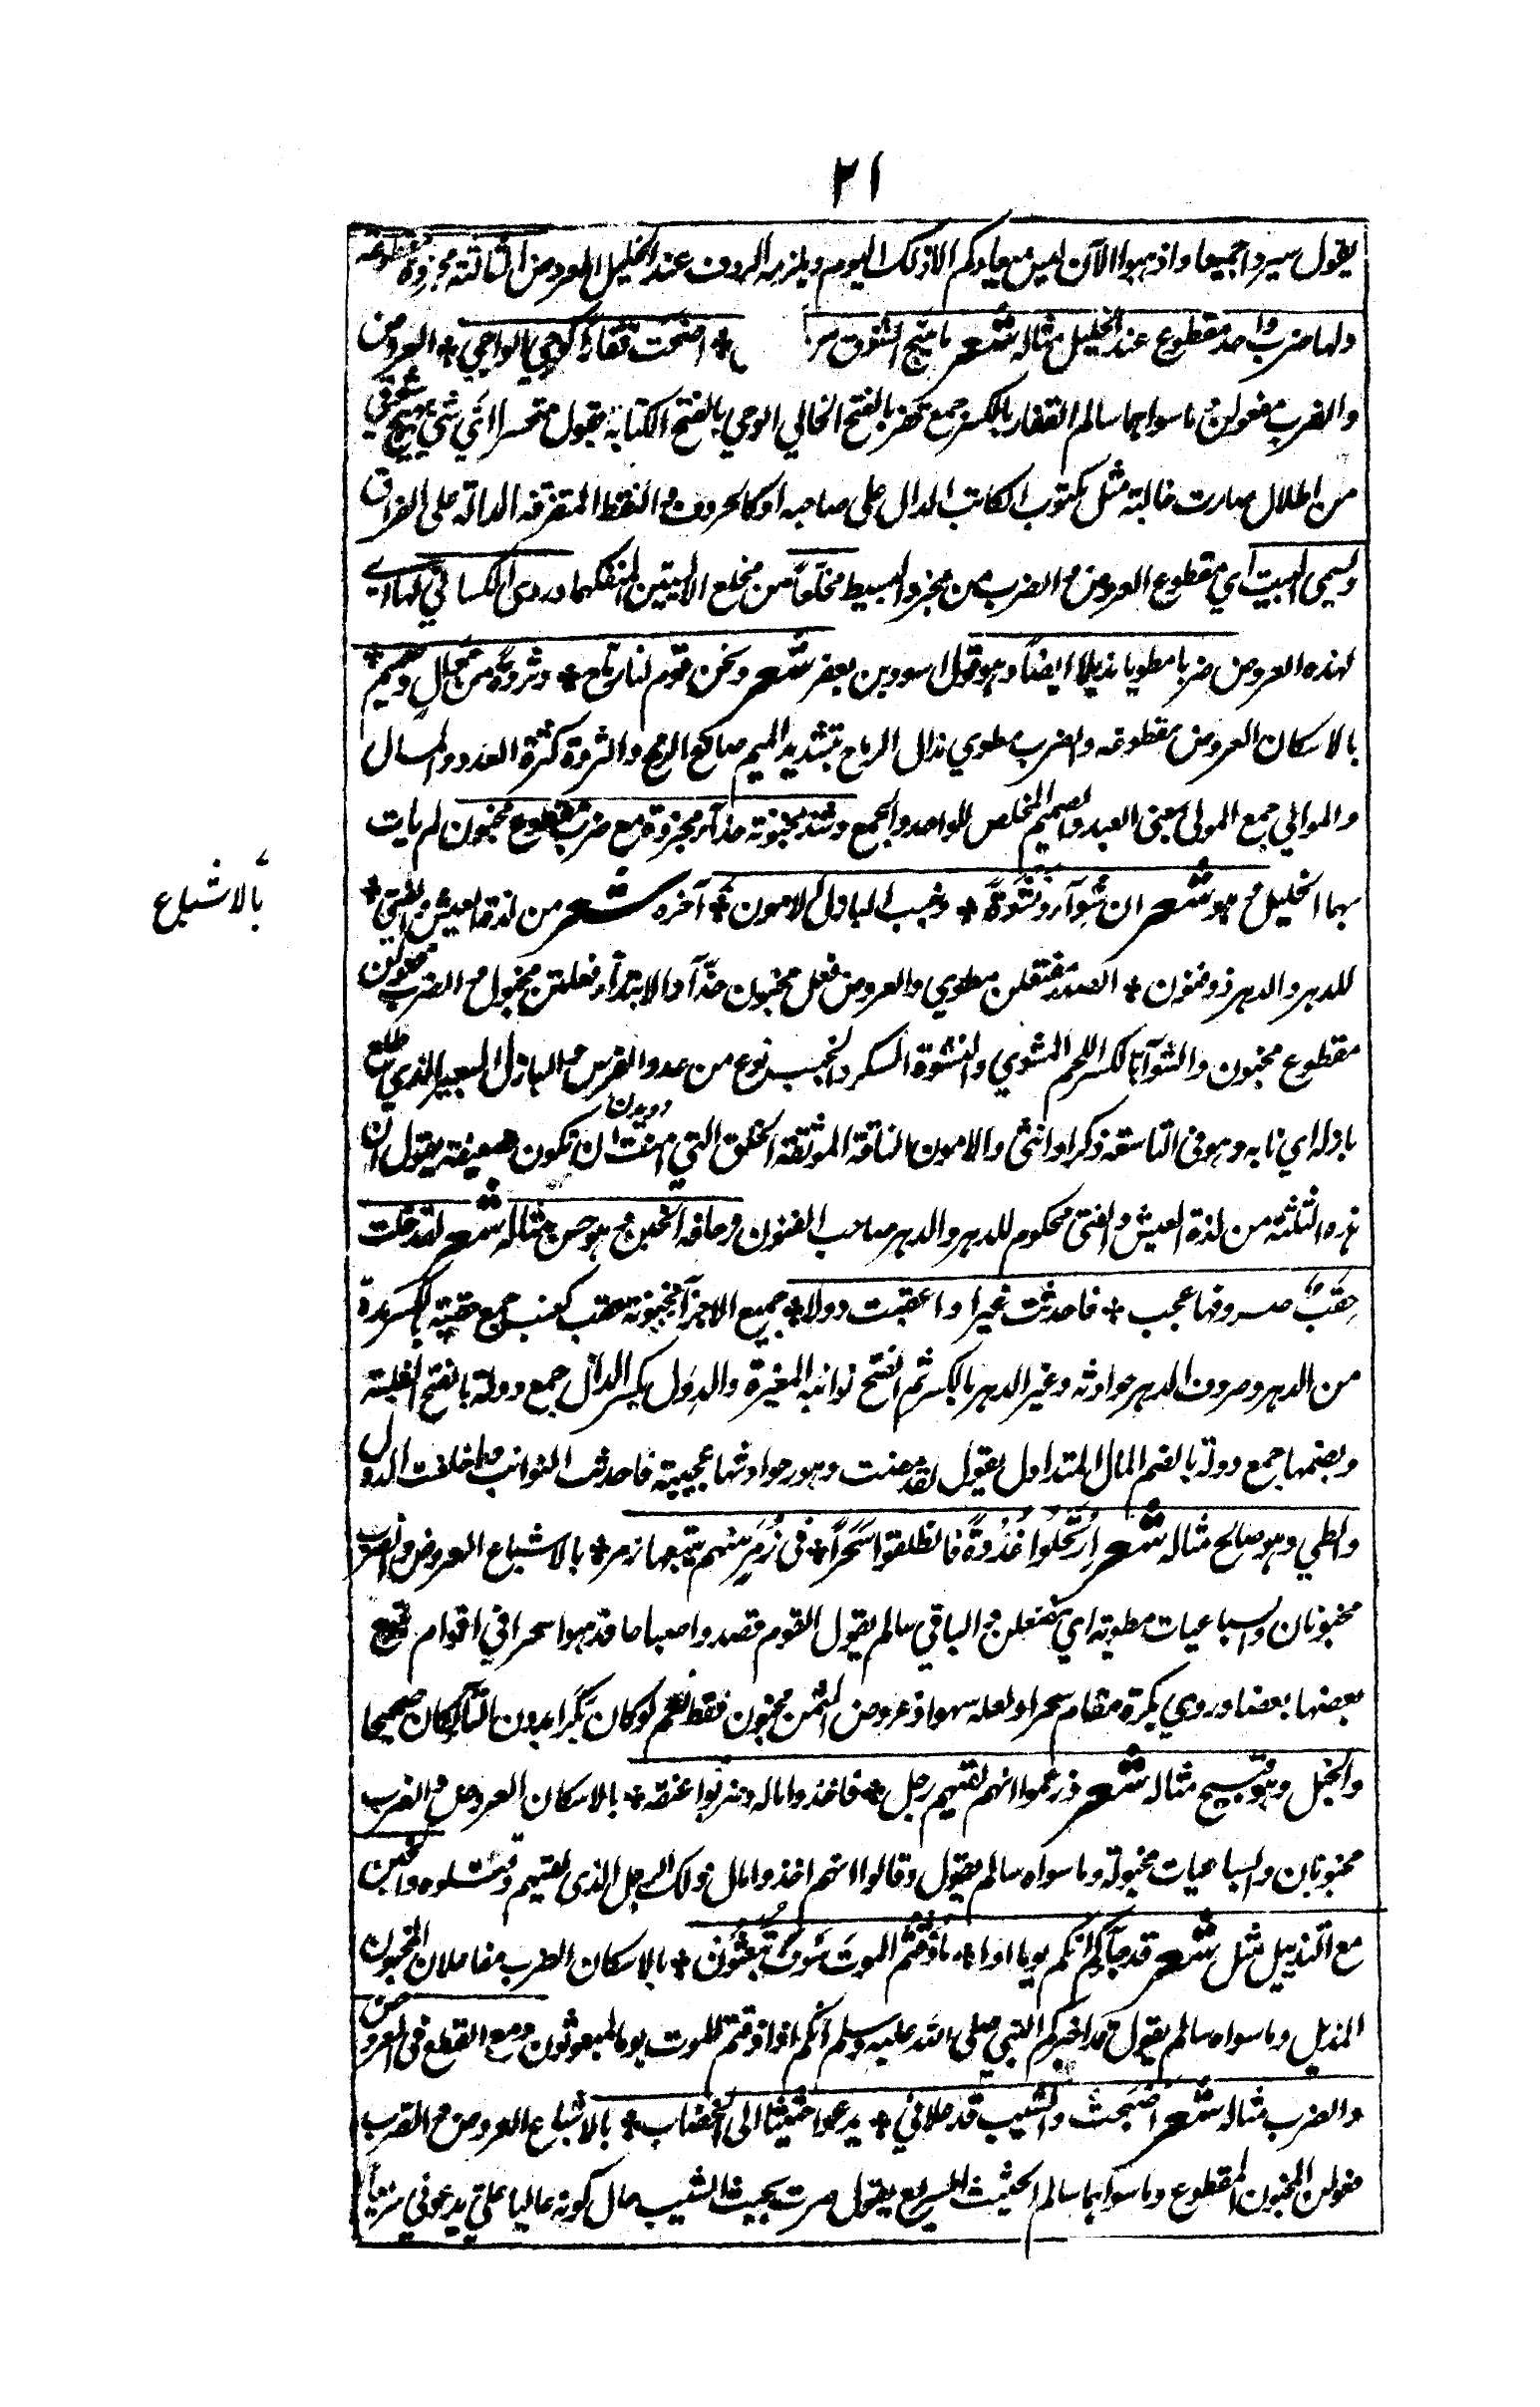 ٢١
يقول سيروا جميعا واذهبوا الآن ليس ميعادكم الا ذلك اليوم ويلزمه الردف عند الخليل العروض الثالثة مجزوة مقطوعة
ولها ضرب واحد مقطوع عند الخليل مثاله شعر ما هيج الشوق من * اضحت قفارا كوحي الواحي * العروض
والضرب مفعولن و ما سواهما سالم القفار بالكسر جمع قفر بالفتح الخالي الوحي بالفتح الكتابة يقول متحسرا اي شي هيج شوقي
من اطلال صارت خالية مثل مكتوب الكاتب الدال على صاحبه او كالحروف و النقط المتفرقة الدالة على الفراق
ويسمى البيت اي مقطوع العروض و الضرب من مجزو البسيط مخلعا من مخلع الاليتين المنفكهما وروى الكسائي لها اي
لهذه العروض ضربا مطويا مذيلا ايضا وهو قول اسود بن يعفر شعر ونحن قوم لنا رماح * وثروة من موال وصميم *
بالاسكان العروض مقطوعة والضرب مطوي مذال الرماح بتشديد الميم صانع الرمح والثروة كثرة العدد والمال
والموالي جمع المولى بمعنى العبد والصميم المخلص للواحد والجمع وشذ مخبونة حذاء مجزوة مع ضرب مقطوع مخبون لم يات
بهما الخليل و هو شعر ان شواء ونشوة * وخبب البازل الامون * آخره شعر من لذة العيش والفتى *
بالاشباع
للدهر والدهر ذو فنون * الصدر مفتعلن مطوي والعروض فعل مخبون حذاء والابتداء فعلتن مخبول و الضرب فعولن
مقطوع مخبون والشواء بالكسر اللحم المشوي والنشوة السكر والخبب نوع من عدو الفرس و البازل البعير الذي طلع
دويدن
بازله اي نابه وهو في التاسعة ذكرا وانثى والامون الناقة الموثقة الخلق التي امنت ان تكون ضعيفة يقول ان
هذه الثلثة من لذة العيش والفتى محكوم للدهر والدهر صاحب الفنون وزحافه الخبن و هو حسن مثاله شعر لقد خلت
حقب صروفها عجب * فاحدثت غيرا واعقبت دولا * جميع الاجزاء مخبونة حقب كعنب جمع حقبة بالكسر مدة
من الدهر وصروف الدهر حوادثه وغير الدهر بالكسر ثم الفتح نوائبه المغيرة والدول بكسر الدال جمع دولة بالفتح الغلبة
وبضمها جمع دولة بالضم المال المتداول يقول لقد مضت دهور حوادثها عجيبة فاحدثت النوائب و اخلفت الدول
والطي وهو صالح مثاله شعر ارتحلوا غدوة فانطلقوا سحرا * في زمر منهم يتبعها زمر * بالاشباع العروض والضرب
مخبونان والسباعيات مطوية اي مفتعلن و الباقي سالم يقول القوم قصدوا صباحا فذهبوا سحرا في اقوام تتبع
بعضها بعضا وروي بكرة مقام سحرا ولعله سهو اذ عروض المثمن مخبون فقط نعم لو كان بكرا بدون التاء لكان صحيحا
والخبل وهو قبيح مثاله شعر وزعموا انهم لقيهم رجل * فاخذوا ماله وضربوا عنقه * بالاسكان العروض و الضرب
مخبونان والسباعيات مخبولة وما سواه سالم يقول وقالوا انهم اخذوا مال ذلك الرجل الذي لقيهم وقتلوه والخبن
مع التذييل مثل شعر قد جاءكم انكم يوما اذا * ما ذقتم الموت سوف تبعثون * بالاسكان الضرب مفاعلان المخبون
المذيل وما سواه سالم يقول قد اخبركم النبي صلى الله عليه وسلم انكم اذا ذقتم الموت يوما لمبعوثون ومع القطع في العروض
والضرب مثاله شعر اصبحت والشيب قد علاني * يدعو حثيثا الى الخضاب * بالاشباع العروض و الضرب
فعولن المخبون المقطوع وما سواهما سالم الحثيث السريع يقول صرت بحيث الشيب حال كونه عاليا علي يدعوني سريعا